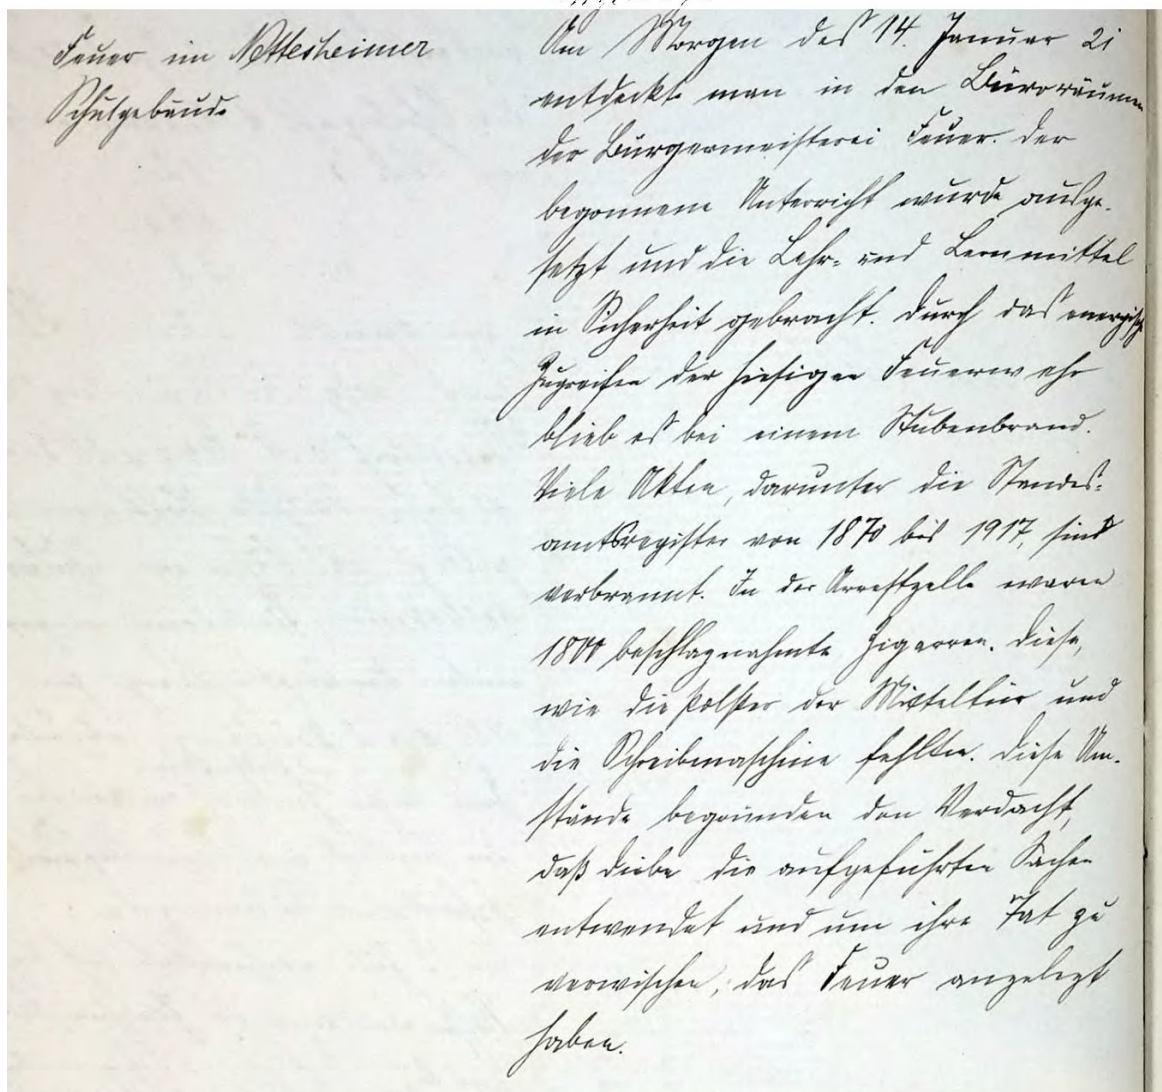 Feuer im Nettesheimer
Schulgebäude
Am Morgen des 14. Januar 21
entdeckte man in den Büroräumen
der Bürgermeisterei Feuer. Der
begonnene Unterricht wurde ausge-
setzt und die Lehr- und Lernmittel
in Sicherheit gebracht. Durch das energische
Zugreifen der hiesigen Feuerwehr
blieb es bei einem Stubenbrand.
Viele Akten, darunter die Standes-
amtsregister von 1870 bis 1917, sind
verbrannt. In der Arrestzelle waren
1800 beschlagnahmte Zigarren. Diese,
wie die Polster der Mitteltür und
die Schreibmaschine fehlten. Diese Um-
stände begründen den Verdacht,
daß Diebe die aufgeführten Sachen
entwendet und um ihre Tat zu
verwischen, das Feuer angelegt
haben.